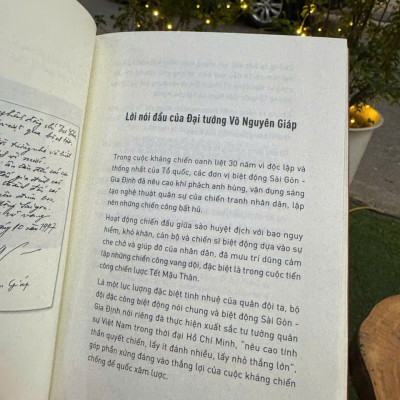 Lời nói đầu của Đại tướng Võ Nguyên Giáp
Trong cuộc kháng chiến oanh liệt 30 năm vì độc lập và
thống nhất của Tổ quốc, các đơn vị biệt động Sài Gòn -
Gia Định đã nêu cao khí phách anh hùng, vận dụng sáng
tạo nghệ thuật quân sự của chiến tranh nhân dân, lập
nên những chiến công bất hủ.
Hoạt động chiến đấu giữa sào huyệt địch với bao nguy
hiểm, khó khăn, cán bộ và chiến sĩ biệt động dựa vào sự
che chở và giúp đỡ của nhân dân, đã mưu trí dũng cảm
lập những chiến công vang dội, đặc biệt là trong cuộc tiến
công chiến lược Tết Mậu Thân.
Là một lực lượng đặc biệt tinh nhuệ của quân đội ta, bộ
đội đặc công biệt động nói chung và biệt động Sài Gòn -
Gia Định nói riêng đã thực hiện xuất sắc tư tưởng quân
sự Việt Nam trong thời đại Hồ Chí Minh, "nêu cao tinh
thần quyết chiến, lấy ít đánh nhiều, lấy nhỏ thắng lớn",
góp phần xứng đáng vào thắng lợi của cuộc kháng chiến
chống đế quốc xâm lược.